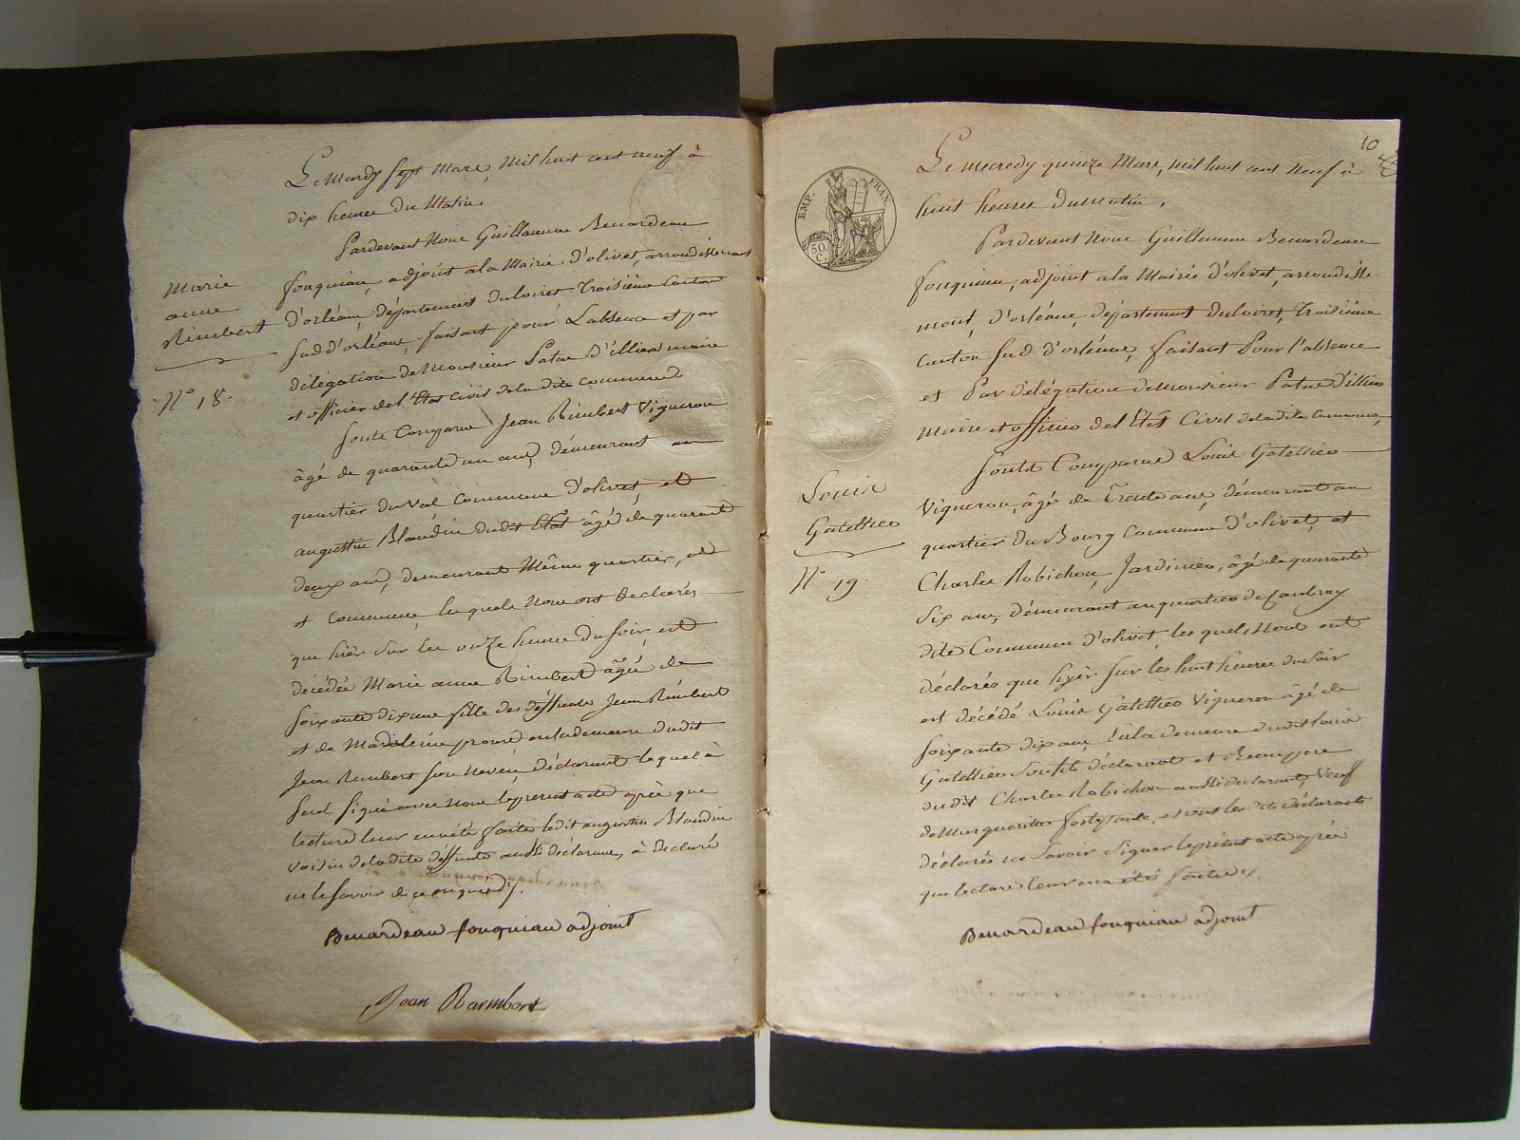 Le Mardy sept Mars, mil huit cent neuf à
dix heures du Matin,
Pardevant Nous Guillaume Benardeau
fouquiau, adjoint a la Mairie d'olivet, arrondissement
d'orléans, département du loiret Troisième Canton
sud d'orléans, faisant pour L'absence et par
délégation de Monsieur Patas D'illiers maire
et officier de l'Etat civil de la dite commune
Sont Comparus Jean Rimbert Vigneron
âgé de quarante un ans, démeurant au
quartier du val Commune d'olivet et
augustin Blandin dudit Etat âgé de quarante
deux ans, demeurant Même quartier, et
et Commune, les quels Nous ont declarés
que hier sur les onze heures du soir, est
décédée Marie anne Rimbert âgée de
soixante dix ans fille des déffunts Jean Rimbert
et de Madeleine prou en la demeure dudit
Jean Rimbert son Neveu, déclarant le quel à
seul signé avec Nous le present acte après que
lecture leur en a été faite ledit augustin Blandin
voisin de la dite déffunte aussi déclarant, à declaré
ne le savoir de ce enquis
Benardeau fouquiau adjoint
Jean Raimbert
Marie
anne
Rimbert
N° 18.
10
EMP. FRAN.
50 C.
Le mecredy quinze Mars, mil huit cent Neuf à
huit heures du matin,
Pardevant Nous Guillaume Benardeau
fouquiau, adjoint a la Mairie d'olivet, arrondisse
ment, d'orléans, département du loiret, Troisième
Canton sud d'orléans, faisant Pour l'absence
et Par délégation de Monsieur Patas D'illiers
Maire et officier de l'Etat Civil de la dite Commune,
Sont Comparus Louis Gatellier
Vigneron, âgé de Trente ans, démeurant au
quartier du Bourg Commune d'olivet, et
Charles Robichon, Jardinier, âgé de quarante
Six ans, démeurant au quartier de Caubray
dite Commune d'olivet, les quels Nous ont
déclarés que hyer sur les huit heures du soir
est décédé Louis Gatellier Vigneron âgé de
soixante dix ans, en la demeure dudit louis
Gatellier son fils déclarant et Beaupere
dudit Charles Robichon aussi declarant, Veuf
de Marguerite, et tous les dits déclarants
déclarés ne Savoir Signer le présent acte après
que lecture leur en a été faite.
Benardeau fouquiau adjoint
Louis
Gatellier
N° 19.